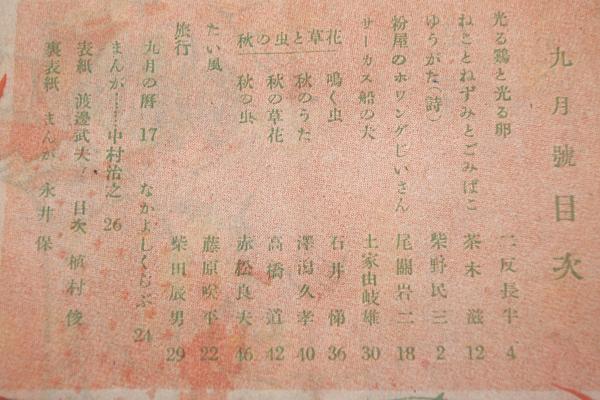 九月號目次
光る鶏と光る卵 二反長半 4
ねことねずみとごみばこ 茶木滋 12
ゆうがた(詩) 柴野民三 2
粉屋のホワングじいさん 尾關岩二 18
サーカス船の犬 土家由岐雄 30
花と草と虫の秋
鳴く虫 石井悌 36
秋のうた 澤潟久孝 40
秋の草花 高橋道 42
秋の虫 赤松良夫 46
たい風 藤原咲平 22
旅行 柴田辰男 29
九月の暦 17 なかよしくらぶ 24
まんが……中村治之 26
表紙 渡邊武夫 目次 植村俊
裏表紙 まんが 永井保